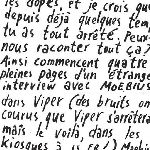 les dopés, et je crois que
depuis déjà quelques tem
tu as tout arrêté. Peux-
nous raconter tout ça?
Ainsi commencent quatre
pleines pages d'un étrange
interview avec MOEBIUS
dans Viper (des bruits on
courus que Viper s'arrêtera
mais le voilà, dans les
kiosques à